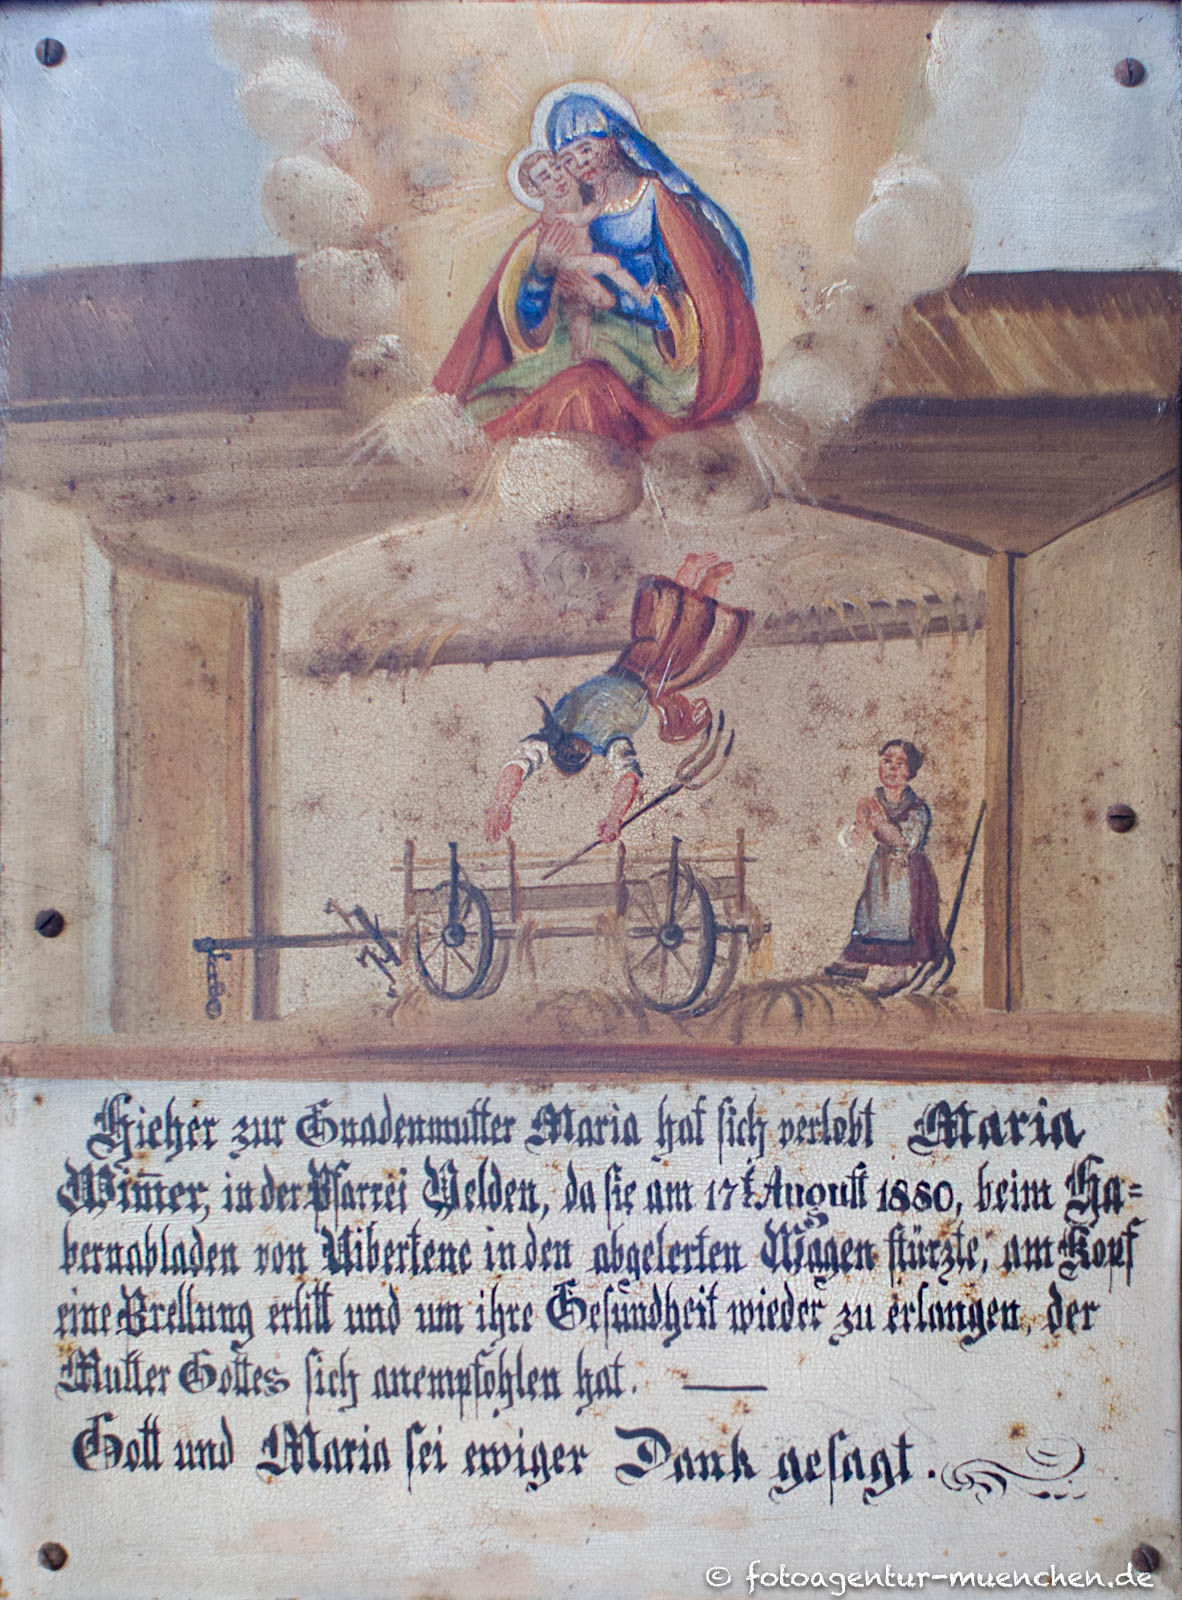 Hieher zur Gnadenmutter Maria hat sich verlobt Maria
Wim̄er, in der Pfarrei Velden, da sie am 17t August 1880, beim Ha=
bernabladen von Vibertene in den abgelerten Wagen stürzte, am Kopf
eine Brellung erlitt und um ihre Gesundheit wieder zu erlangen, der
Mutter Gottes sich anempfohlen hat. —
Gott und Maria sei ewiger Dank gesagt.
© fotoagentur-muenchen.de